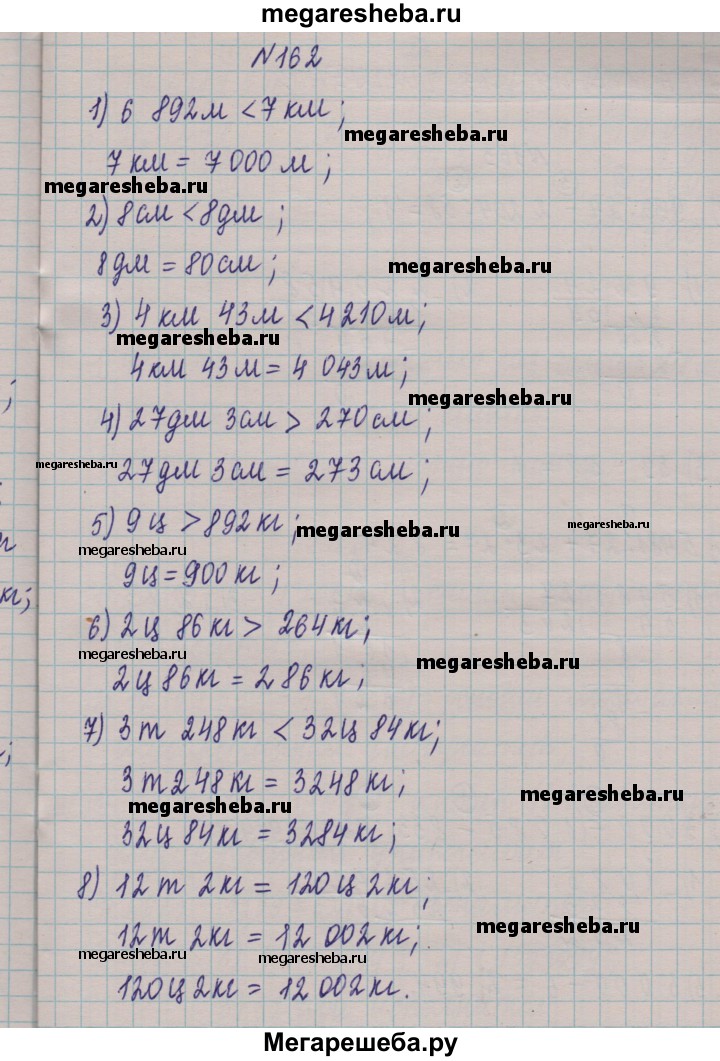 megaresheba.ru
N162
1) 6 892м < 7 км;
megaresheba.ru
7 км = 7 000 м;
megaresheba.ru
2) 8см < 8дм;
8дм = 80см;
megaresheba.ru
3) 4 км 43м < 4 210м;
megaresheba.ru
4км 43м = 4 043м;
megaresheba.ru
4) 27дм 3см > 270см;
megaresheba.ru
27дм 3см = 273см;
5) 9ц > 892кг;
megaresheba.ru
megaresheba.ru
megaresheba.ru
9ц = 900кг;
кг;
6) 2ц 86кг > 264кг;
megaresheba.ru
megaresheba.ru
2ц 86кг = 286кг;
7) 3т 248кг < 32ц 84кг;
3т 248кг = 3248кг;
megaresheba.ru
megaresheba.ru
32ц 84кг = 3284кг;
8) 12т 2кг = 120ц 2кг;
megaresheba.ru
12т 2кг = 12 002кг;
megaresheba.ru
megaresheba.ru
120ц 2кг = 12 002кг.
Мегарешеба.ру